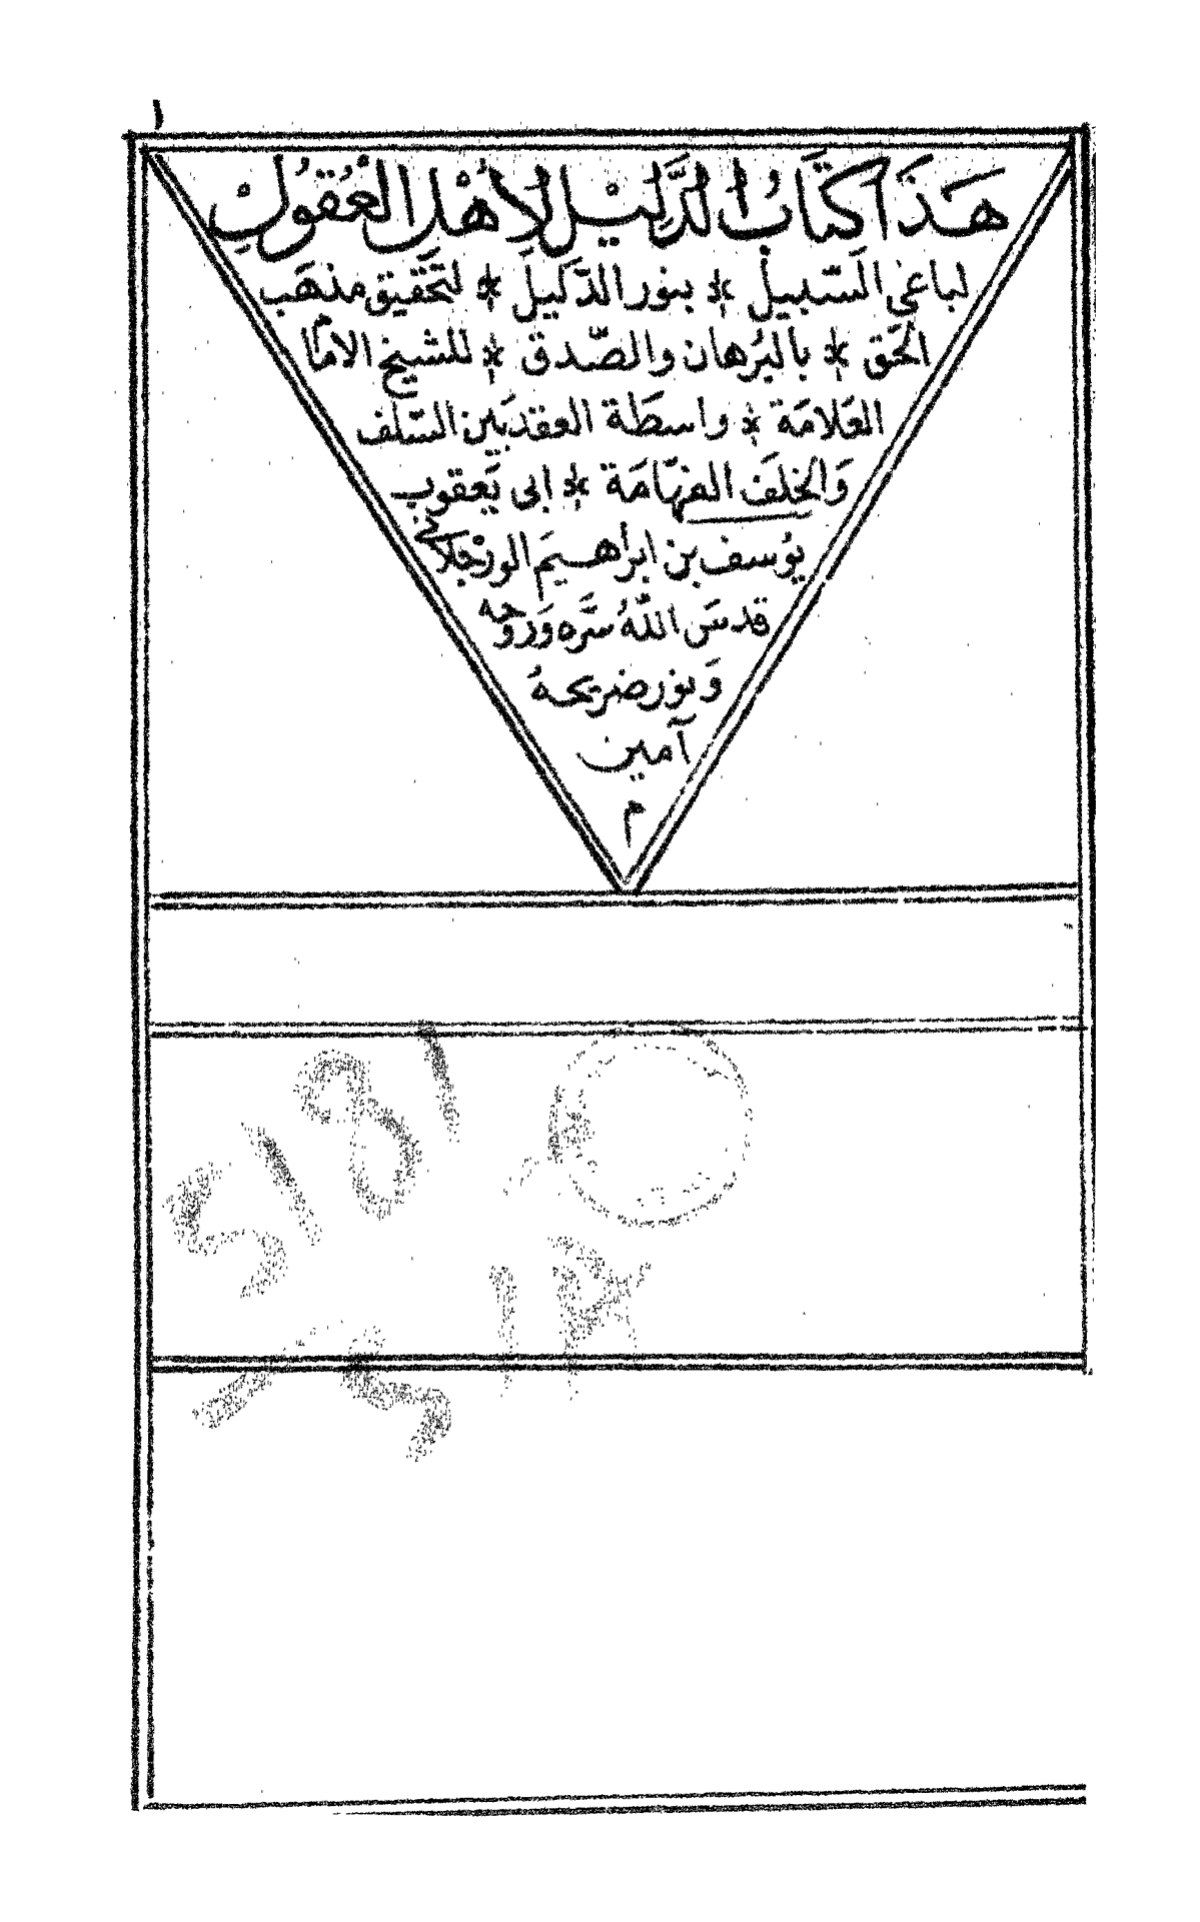 ١
هَذَا كِتَابُ الدَّلِيْلِ لِأَهْلِ الْعُقُولِ
لباغي السّبيل * بنور الدّليل * لتحقيق مذهب
الحق * بالبُرهان والصّدق * للشيخ الامام
العَلامَة * واسطَة العقد بَين السّلف
وَالخلَف الفهّامَة * ابى يَعقوب
يوُسف بن ابراهيَم الورْجلانى
قدسَ اللّهُ سَّره وَروُحه
وَنور ضريحهُ
آمين
م